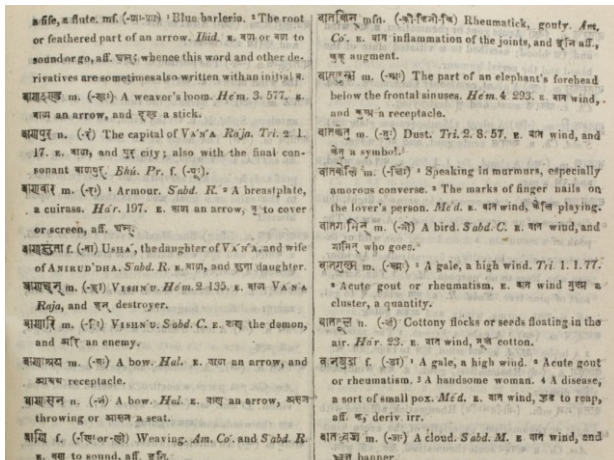 a fife, a flute. mf. (-णः-णा) ¹ Blue barleria. ² The root
or feathered part of an arrow. Ibid. E. वाण or बण to
sound or go, aff. घञ्; whence this word and other de-
rivatives are sometimes also written with an initial व.
बाणदण्ड m. (-ण्डः) A weaver's loom. Hém. 3. 577. E.
बाण an arrow, and दण्ड a stick.
बाणपुर n. (-रं) The capital of VA'N'A Raja. Tri. 2. 1.
17. E. बाण, and पुर city; also with the final con-
sonant बाणपुर्. Bhú. Pr. f. (-पूः).
बाणवार m. (-रः) ¹ Armour. Sabd. R. ² A breastplate,
a cuirass. Hár. 197. E. बाण an arrow, वृ to cover
or screen, aff. घञ्.
बाणसुता f. (-ता) USHA', the daughter of VA'N'A, and wife
of ANIRUD'DHA. Sabd. R. E. बाण, and सुता daughter.
बाणहन् m. (-हा) VISHN'U. Hém. 2. 135. E. बाण VA'N'A
Raja, and हन् destroyer.
बाणारि m. (-रिः) VISHN'U. Sabd. C. E. बाण the demon,
and अरि an enemy.
बाणाश्रय m. (-यः) A bow. Hal. E. बाण an arrow, and
आश्रय receptacle.
बाणासन n. (-नं) A bow. Hal. E. बाण an arrow, असन
throwing or आसन a seat.
बाणि f. (-णिः or -णी) Weaving. Am. Co. and Sabd. R.
E. बण to sound, aff. इनि.
वातकिन् mfn. (-की-किनी-कि) Rheumatick, gouty. Am.
Co. E. वात inflammation of the joints, and इनि aff.,
कुक् augment.
वातकुम्भ m. (-म्भः) The part of an elephant's forehead
below the frontal sinuses. Hém. 4. 293. E. वात wind,
and कुम्भ a receptacle.
वातकेतु m. (-तुः) Dust. Tri. 2. 8. 57. E. वात wind, and
केतु a symbol.
वातकेलि m. (-लिः) ¹ Speaking in murmurs, especially
amorous converse. ² The marks of finger nails on
the lover's person. Méd. E. वात wind, केलि playing.
वातगामिन् m. (-मी) A bird. Sabd. C. E. वात wind, and
गामिन् who goes.
वातगुल्म m. (-ल्मः) ¹ A gale, a high wind. Tri. 1. 1. 77.
² Acute gout or rheumatism. E. वात wind गुल्म a
cluster, a quantity.
वाततूल n. (-लं) Cottony flocks or seeds floating in the
air. Hár. 23. E. वात wind, तूल cotton.
वातखुडा f. (-डा) ¹ A gale, a high wind. ² Acute gout
or rheumatism. ³ A handsome woman. 4 A disease,
a sort of small pox. Méd. E. वात wind, to reap,
aff. क, deriv. irr.
वातध्वज m. (-जः) A cloud. Sabd. M. E. वात wind, and
ध्वज banner.